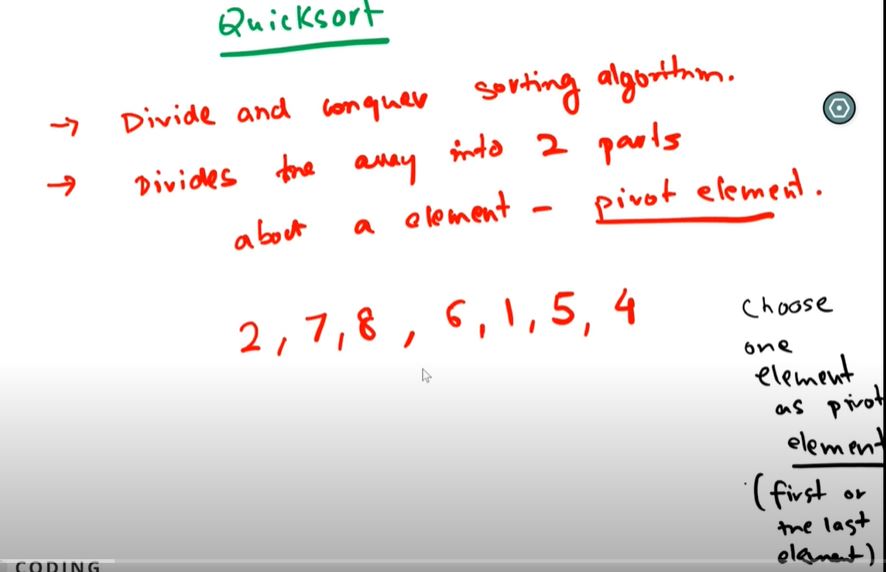 Quicksort
→ Divide and conquer sorting algorithm.
→ Divides the array into 2 parts
about a element - pivot element.
2, 7, 8, 6, 1, 5, 4
Choose
one
element
as pivot
element
(first or
the last
element)
CODING